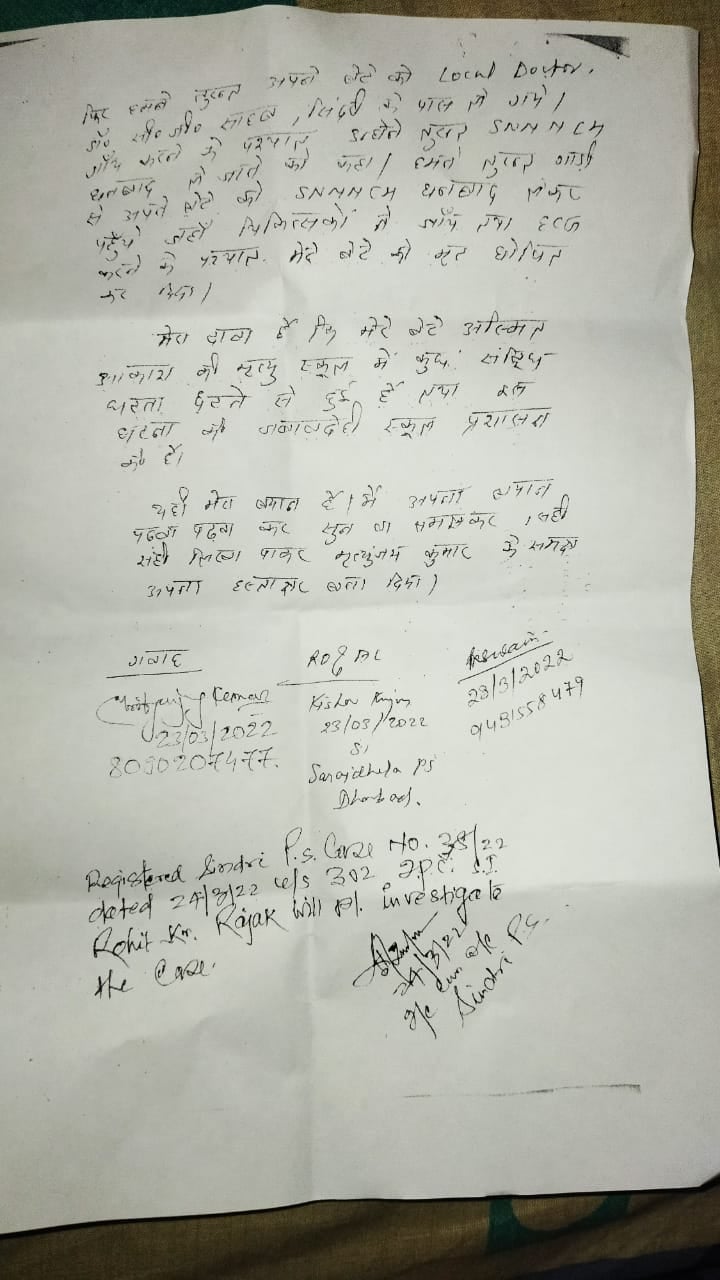 फिर हमने तुरन्त अपने बेटे को Local Doctor,
डॉ० सी० जी० साहब, सिंदरी के पास ले गये।
जाँच करने के पश्चात उन्होंने तुरन्त SNMMCH
धनबाद ले जाने को कहा। हमने तुरन्त गाड़ी
से अपने बेटे को SNMMCH धनबाद लेकर
पहुँचे जहाँ चिकित्सकों ने जाँच तथा ECG
करने के पश्चात मेरे बेटे को मृत घोषित
कर दिया।
मेरा दावा है कि मेरे बेटे
आकाश की मृत्यु स्कूल में कुछ संदिग्ध
घटना घटने से हुई है तथा इस
घटना की जवाबदेही स्कूल प्रशासन
की है।
यही मेरा बयान है। मैं अपना बयान
पढ़वा कर सुन वा समझकर, सही
सही लिखा पाकर मृत्युंजय कुमार के समक्ष
अपना हस्ताक्षर बना दिया।
गवाह
RO & AC
Mrityunjay Kumar
23/03/2022
Kishor
23/03/2022
SI
Saraidhela PS
Dhanbad.
23/3/2022
9431558479
Registered Sindri P.S. Case No. 38/22
dated 24/3/22 u/s 302 IPC. S.I.
Rohit Kr. Rajak will pl. investigate
the case.
24/3/22
Sindri P.S.